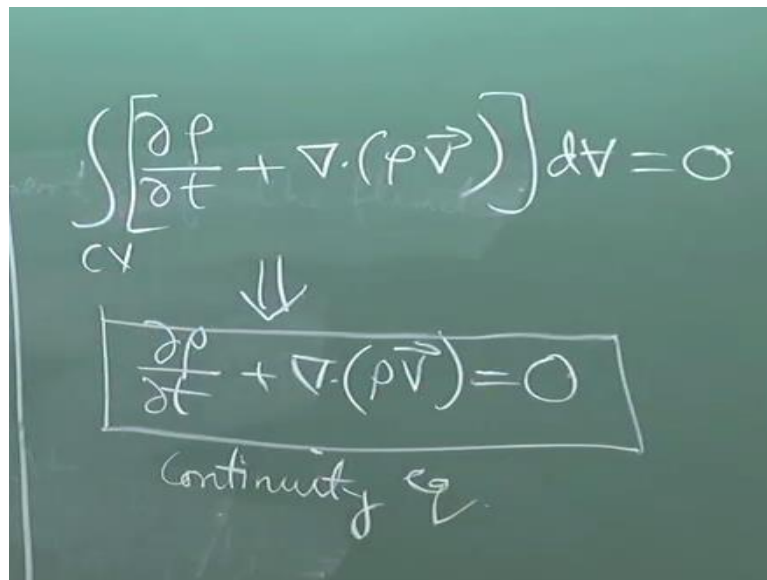 ∫ [∂ρ/∂t + ∇·(ρV⃗)] dV̶ = 0
CV
⇓
∂ρ/∂t + ∇·(ρV⃗) = 0
Continuity eq.